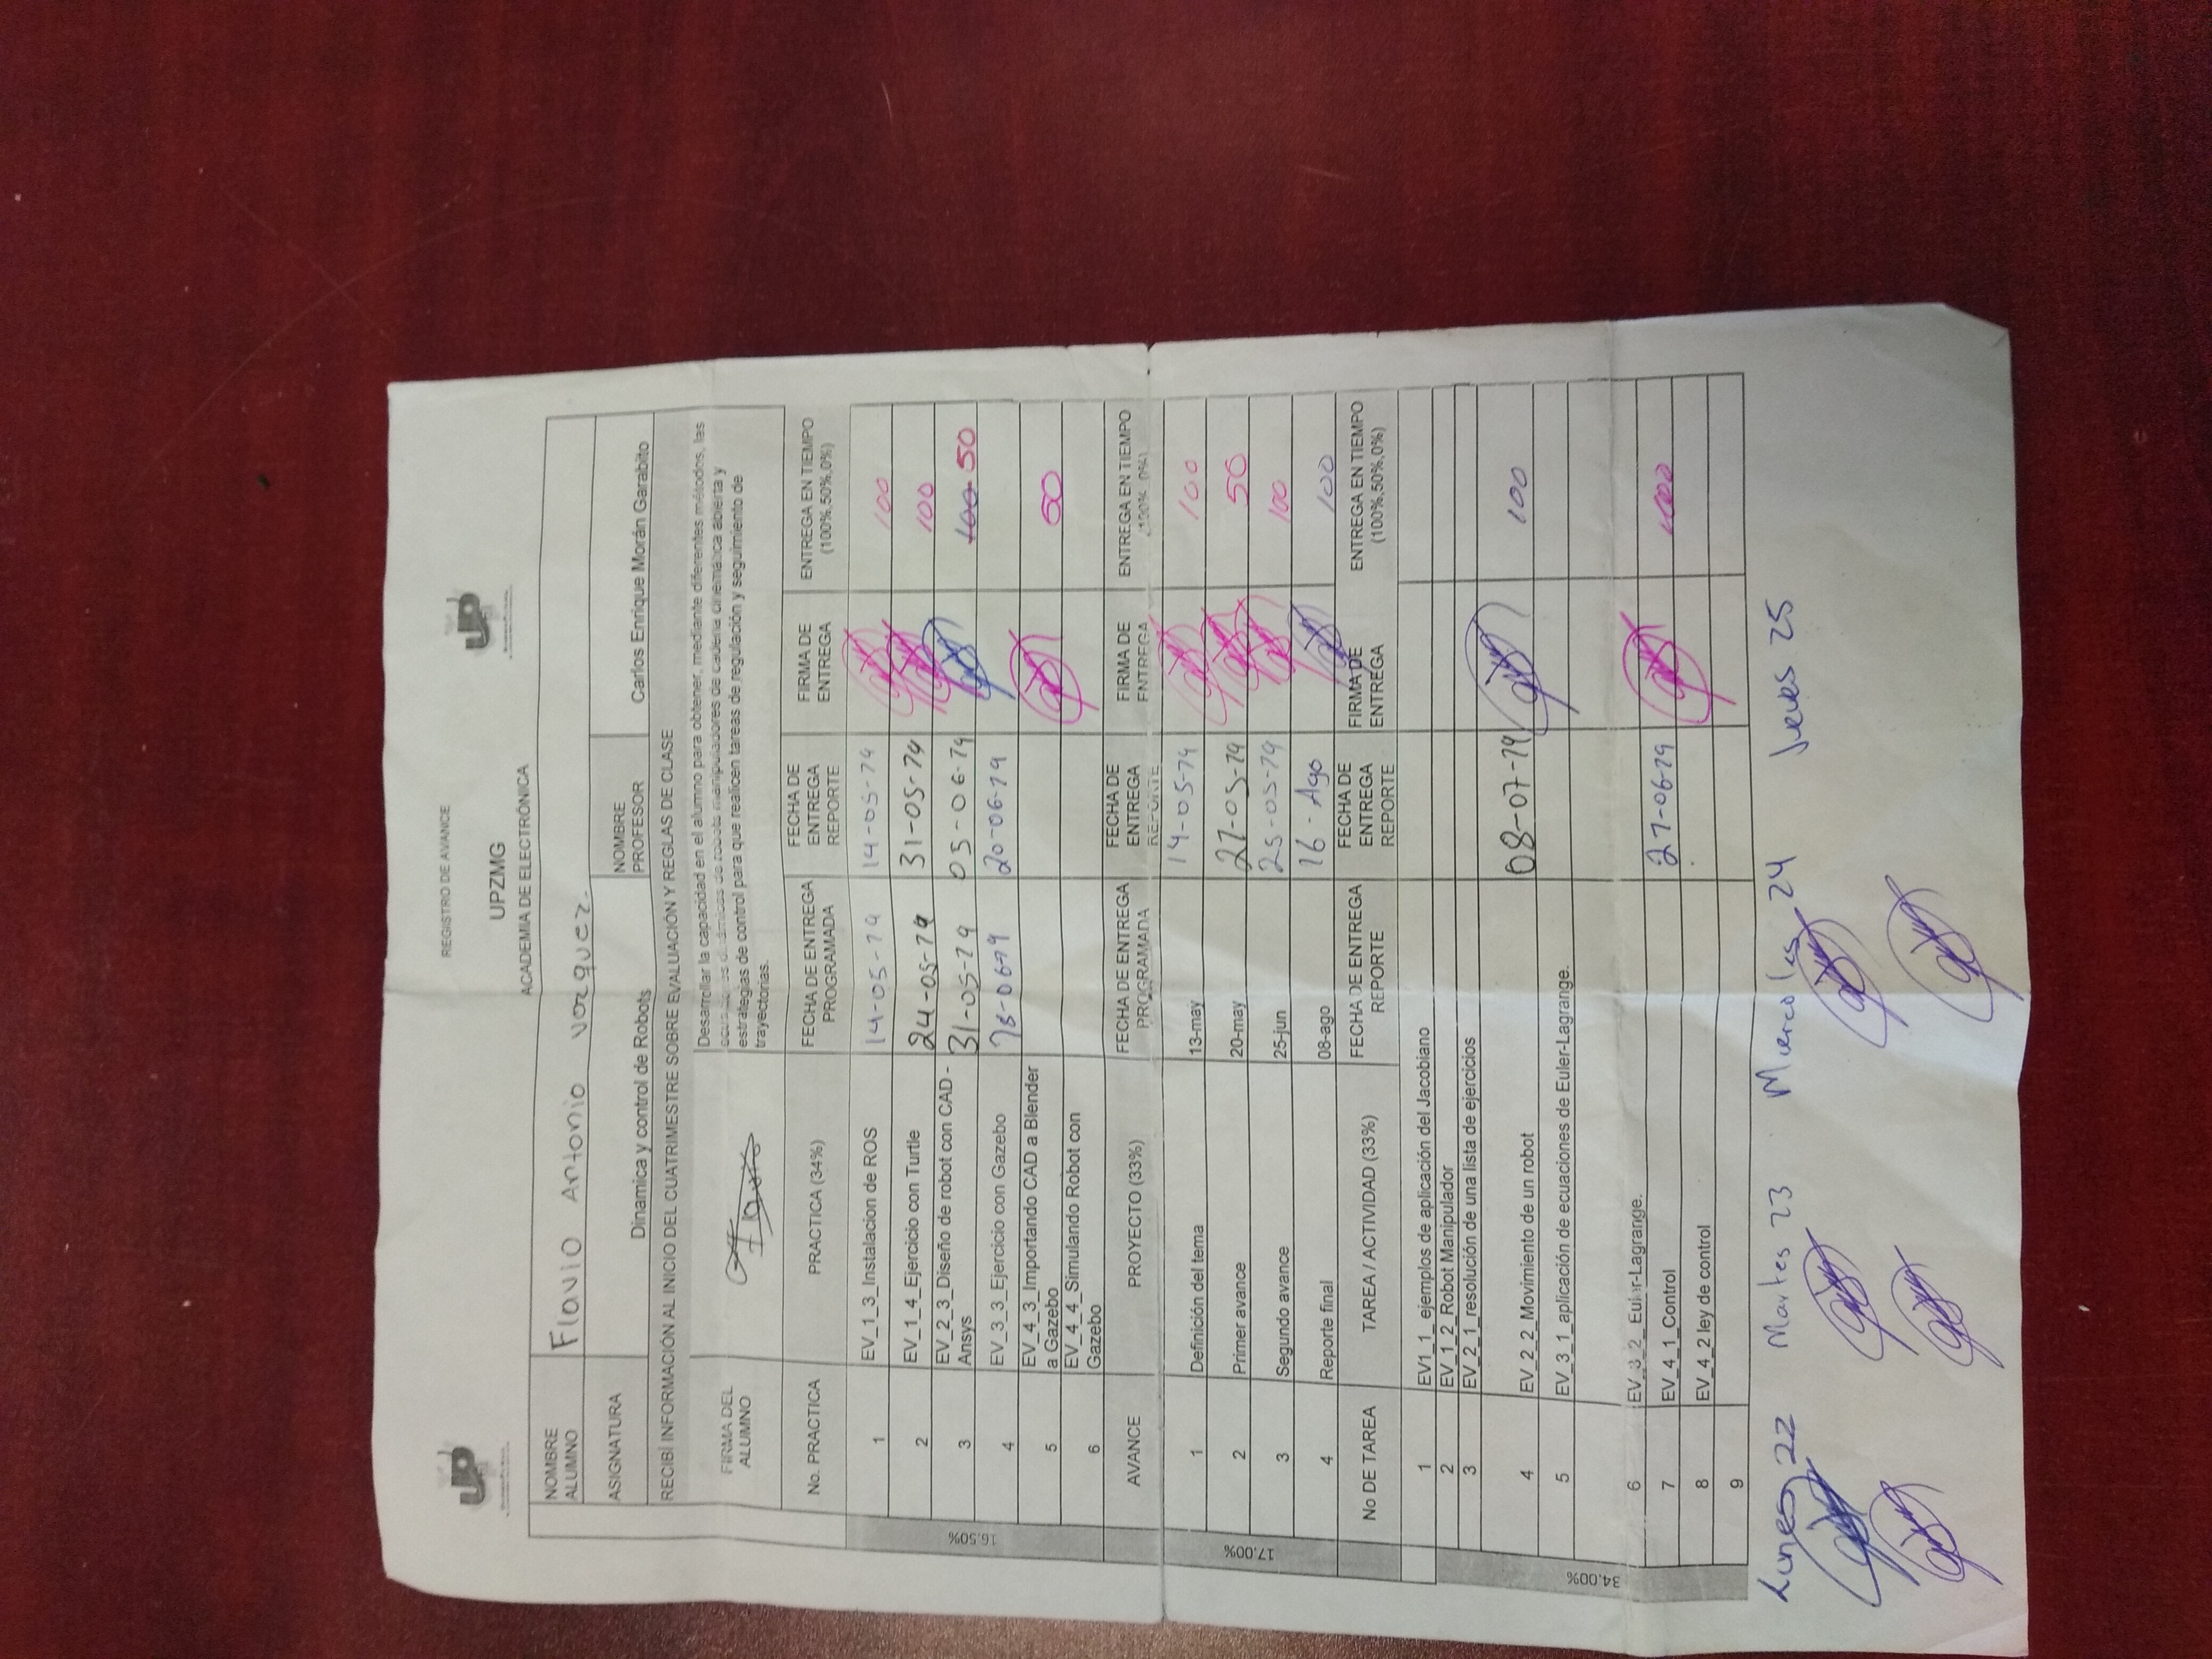 REGISTRO DE AVANCE
UP UP
UPZMG
ACADEMIA DE ELECTRÓNICA
NOMBRE ALUMNO Flavio Antonio vazquez.
ASIGNATURA Dinamica y control de Robots NOMBRE PROFESOR Carlos Enrique Morán Garabito
RECIBÍ INFORMACIÓN AL INICIO DEL CUATRIMESTRE SOBRE EVALUACIÓN Y REGLAS DE CLASE
FIRMA DEL ALUMNO Flavio
Desarrollar la capacidad en el alumno para obtener, mediante diferentes métodos, las
ecuaciones dinámicas de robots manipuladores de cadena cinemática abierta y
estrategias de control para que realicen tareas de regulación y seguimiento de
trayectorias.
No. PRACTICA PRACTICA (34%) FECHA DE ENTREGA PROGRAMADA FECHA DE ENTREGA REPORTE FIRMA DE ENTREGA ENTREGA EN TIEMPO (100%,50%,0%)
16.50%
1 EV_1_3_Instalacion de ROS 14-05-19 14-05-19 100
2 EV_1_4_Ejercicio con Turtle 24-05-19 31-05-19 100
3 EV_2_3_Diseño de robot con CAD - Ansys 31-05-19 05-06-19 100 50
4 EV_3_3_Ejercicio con Gazebo 18-06-19 20-06-19
5 EV_4_3_Importando CAD a Blender a Gazebo 50
6 EV_4_4_Simulando Robot con Gazebo
AVANCE PROYECTO (33%) FECHA DE ENTREGA PROGRAMADA FECHA DE ENTREGA REPORTE FIRMA DE ENTREGA ENTREGA EN TIEMPO (100%, 0%)
17.00%
1 Definición del tema 13-may 14-05-19 100
2 Primer avance 20-may 27-05-19 50
3 Segundo avance 25-jun 25-05-19 100
4 Reporte final 08-ago 16-Ago 100
No DE TAREA TAREA / ACTIVIDAD (33%) FECHA DE ENTREGA REPORTE FECHA DE ENTREGA REPORTE FIRMA DE ENTREGA ENTREGA EN TIEMPO (100%,50%,0%)
34.00%
1 EV1_1_ ejemplos de aplicación del Jacobiano
2 EV_1_2_Robot Manipulador
3 EV_2_1_resolución de una lista de ejercicios
4 EV_2_2_Movimiento de un robot 08-07-19 100
5 EV_3_1_aplicación de ecuaciones de Euler-Lagrange.
6 EV_3_2_ Euler-Lagrange.
7 EV_4_1_Control 27-06-19 100
8 EV_4_2 ley de control
9
Lunes 22 Martes 23 Miercoles 24 Jueves 25